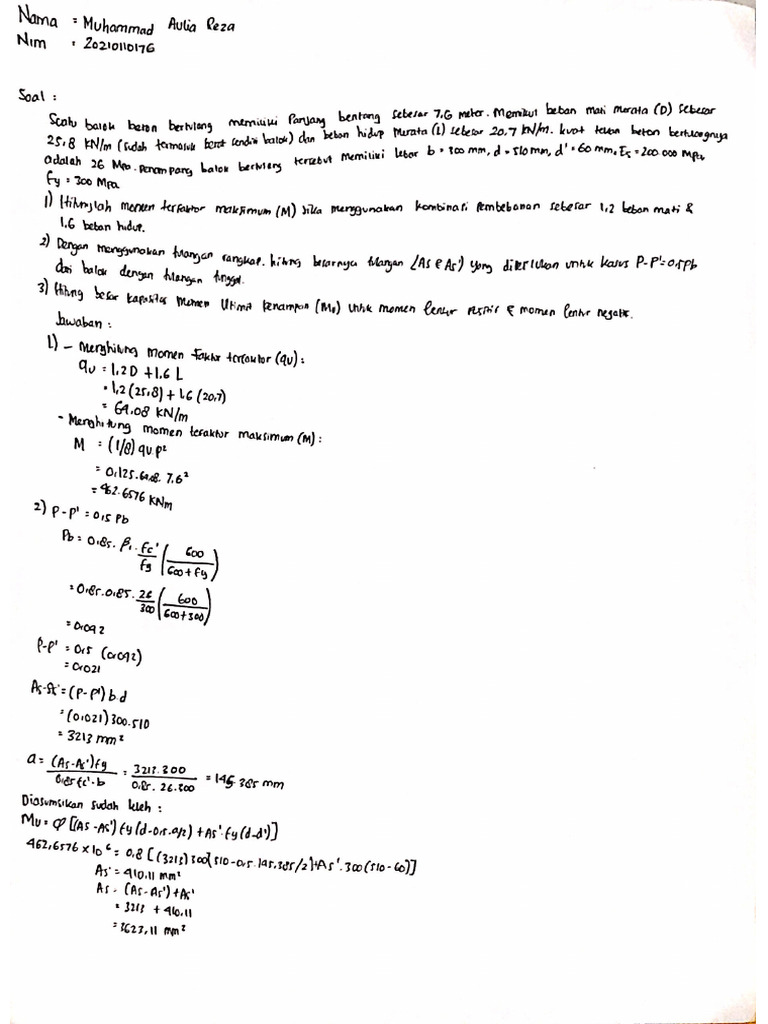 Nama : Muhammad Aulia Reza
Nim : 20210110176
Soal :
Suatu balok beton bertulang memiliki Panjang bentang sebesar 7,6 meter. Memikul beban mati merata (D) sebesar
25,8 KN/m (sudah termasuk berat sendiri balok) dan beban hidup merata (L) sebesar 20,7 KN/m. kuat tekan beton bertulangnya
adalah 26 Mpa. Penampang balok bertulang tersebut memiliki lebar b = 300 mm, d = 510 mm, d' = 60 mm, Es = 200 000 Mpa,
fy = 300 Mpa.
1) Hitunglah momen terfaktor maksimum (M) Jika menggunakan kombinasi pembebanan sebesar 1,2 beban mati &
1.6 beban hidup.
2) Dengan menggunakan tulangan rangkap. hitung besarnya tulangan (As & As') yang diperlukan untuk kasus P-P' = 0,5Pb
dari balok dengan tulangan tunggal.
3) Hitung besar kapasitas momen Ultimit Penampang (Mu) untuk momen lentur positif & momen lentur negatif.
Jawaban :
1) - Menghitung momen faktor terfaktor (qu) :
qu = 1,2 D + 1.6 L
= 1,2 (25,8) + 1.6 (20,7)
= 64.08 KN/m
- Menghitung momen terfaktor maksimum (M) :
M = (1/8) qu P²
= 0,125 . 64.08 . 7.6²
= 462.6576 KNm
2) P-P' = 0,5 Pb
Pb = 0,85 . β₁ . fc'/fy (600/600 + fy)
= 0,85 . 0,85 . 26/300 (600/600+300)
= 0,042
P-P' = 0,5 (0,042)
= 0,021
As-As' = (P-P') b.d
= (0,021) 300.510
= 3213 mm²
a = (As-As')fy/0,85 fc'.b = 3213.300/0,85.26.300 = 145.385 mm
Diasumsikan sudah leleh :
Mu = φ [(As -As') fy (d-0,5.a/2) + As'.fy (d-d')]
462,6576 x 10⁶ = 0,8 [(3213) 300(510-0,5.145,385/2)+As'.300(510-60)]
As' = 410,11 mm²
As = (As-As') +As'
= 3213 + 410,11
= 3623,11 mm²